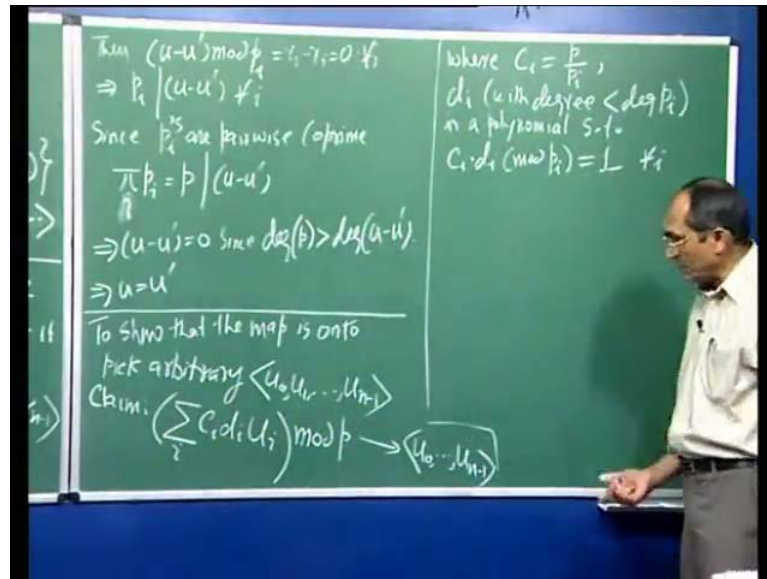 Then (u-u') mod p_i = r_i - r_i = 0 ∀i
⇒ p_i | (u-u') ∀i
Since p_i's are pairwise coprime
π p_i = p | (u-u')
i
⇒ (u-u') = 0 Since deg(p) > deg(u-u').
⇒ u = u'
To show that the map is onto
pick arbitrary <u_0, u_1, ..., u_{n-1}>
Claim: (∑ c_i d_i u_i) mod p → <u_0, ..., u_{n-1}>
i
where C_i = p/p_i,
d_i (with degree < deg p_i)
is a polynomial s.t.
C_i · d_i (mod p_i) = 1 ∀i